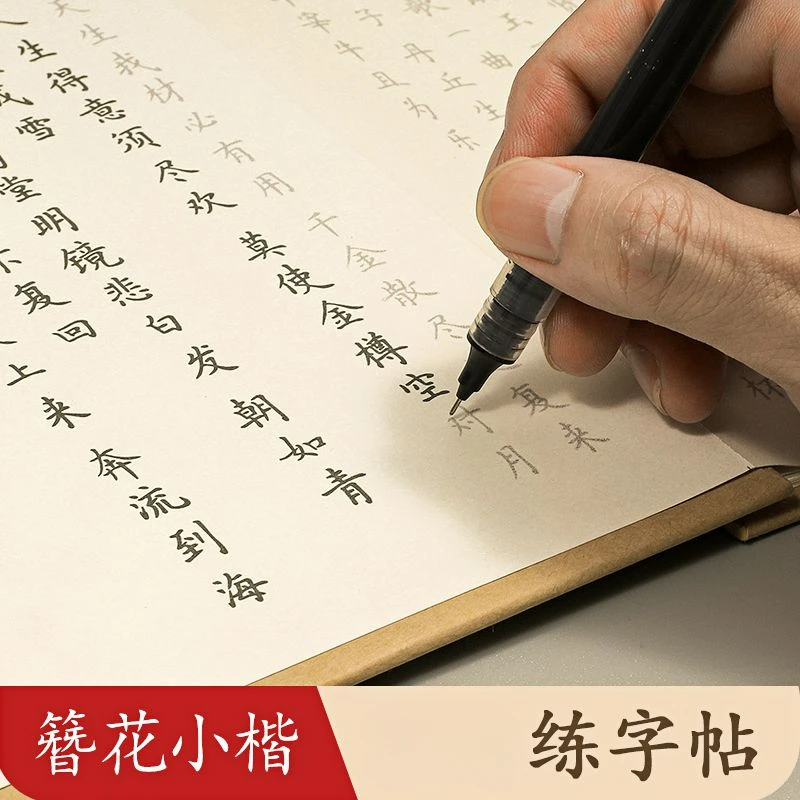 上来 奔流到海
不复回
堂明镜悲白发 朝如青
成雪
人生得意须尽欢 莫使金樽空对月
天生我材必有用 千金散尽复来
宰牛且为乐
子丹丘生
一曲
簪花小楷
练字帖